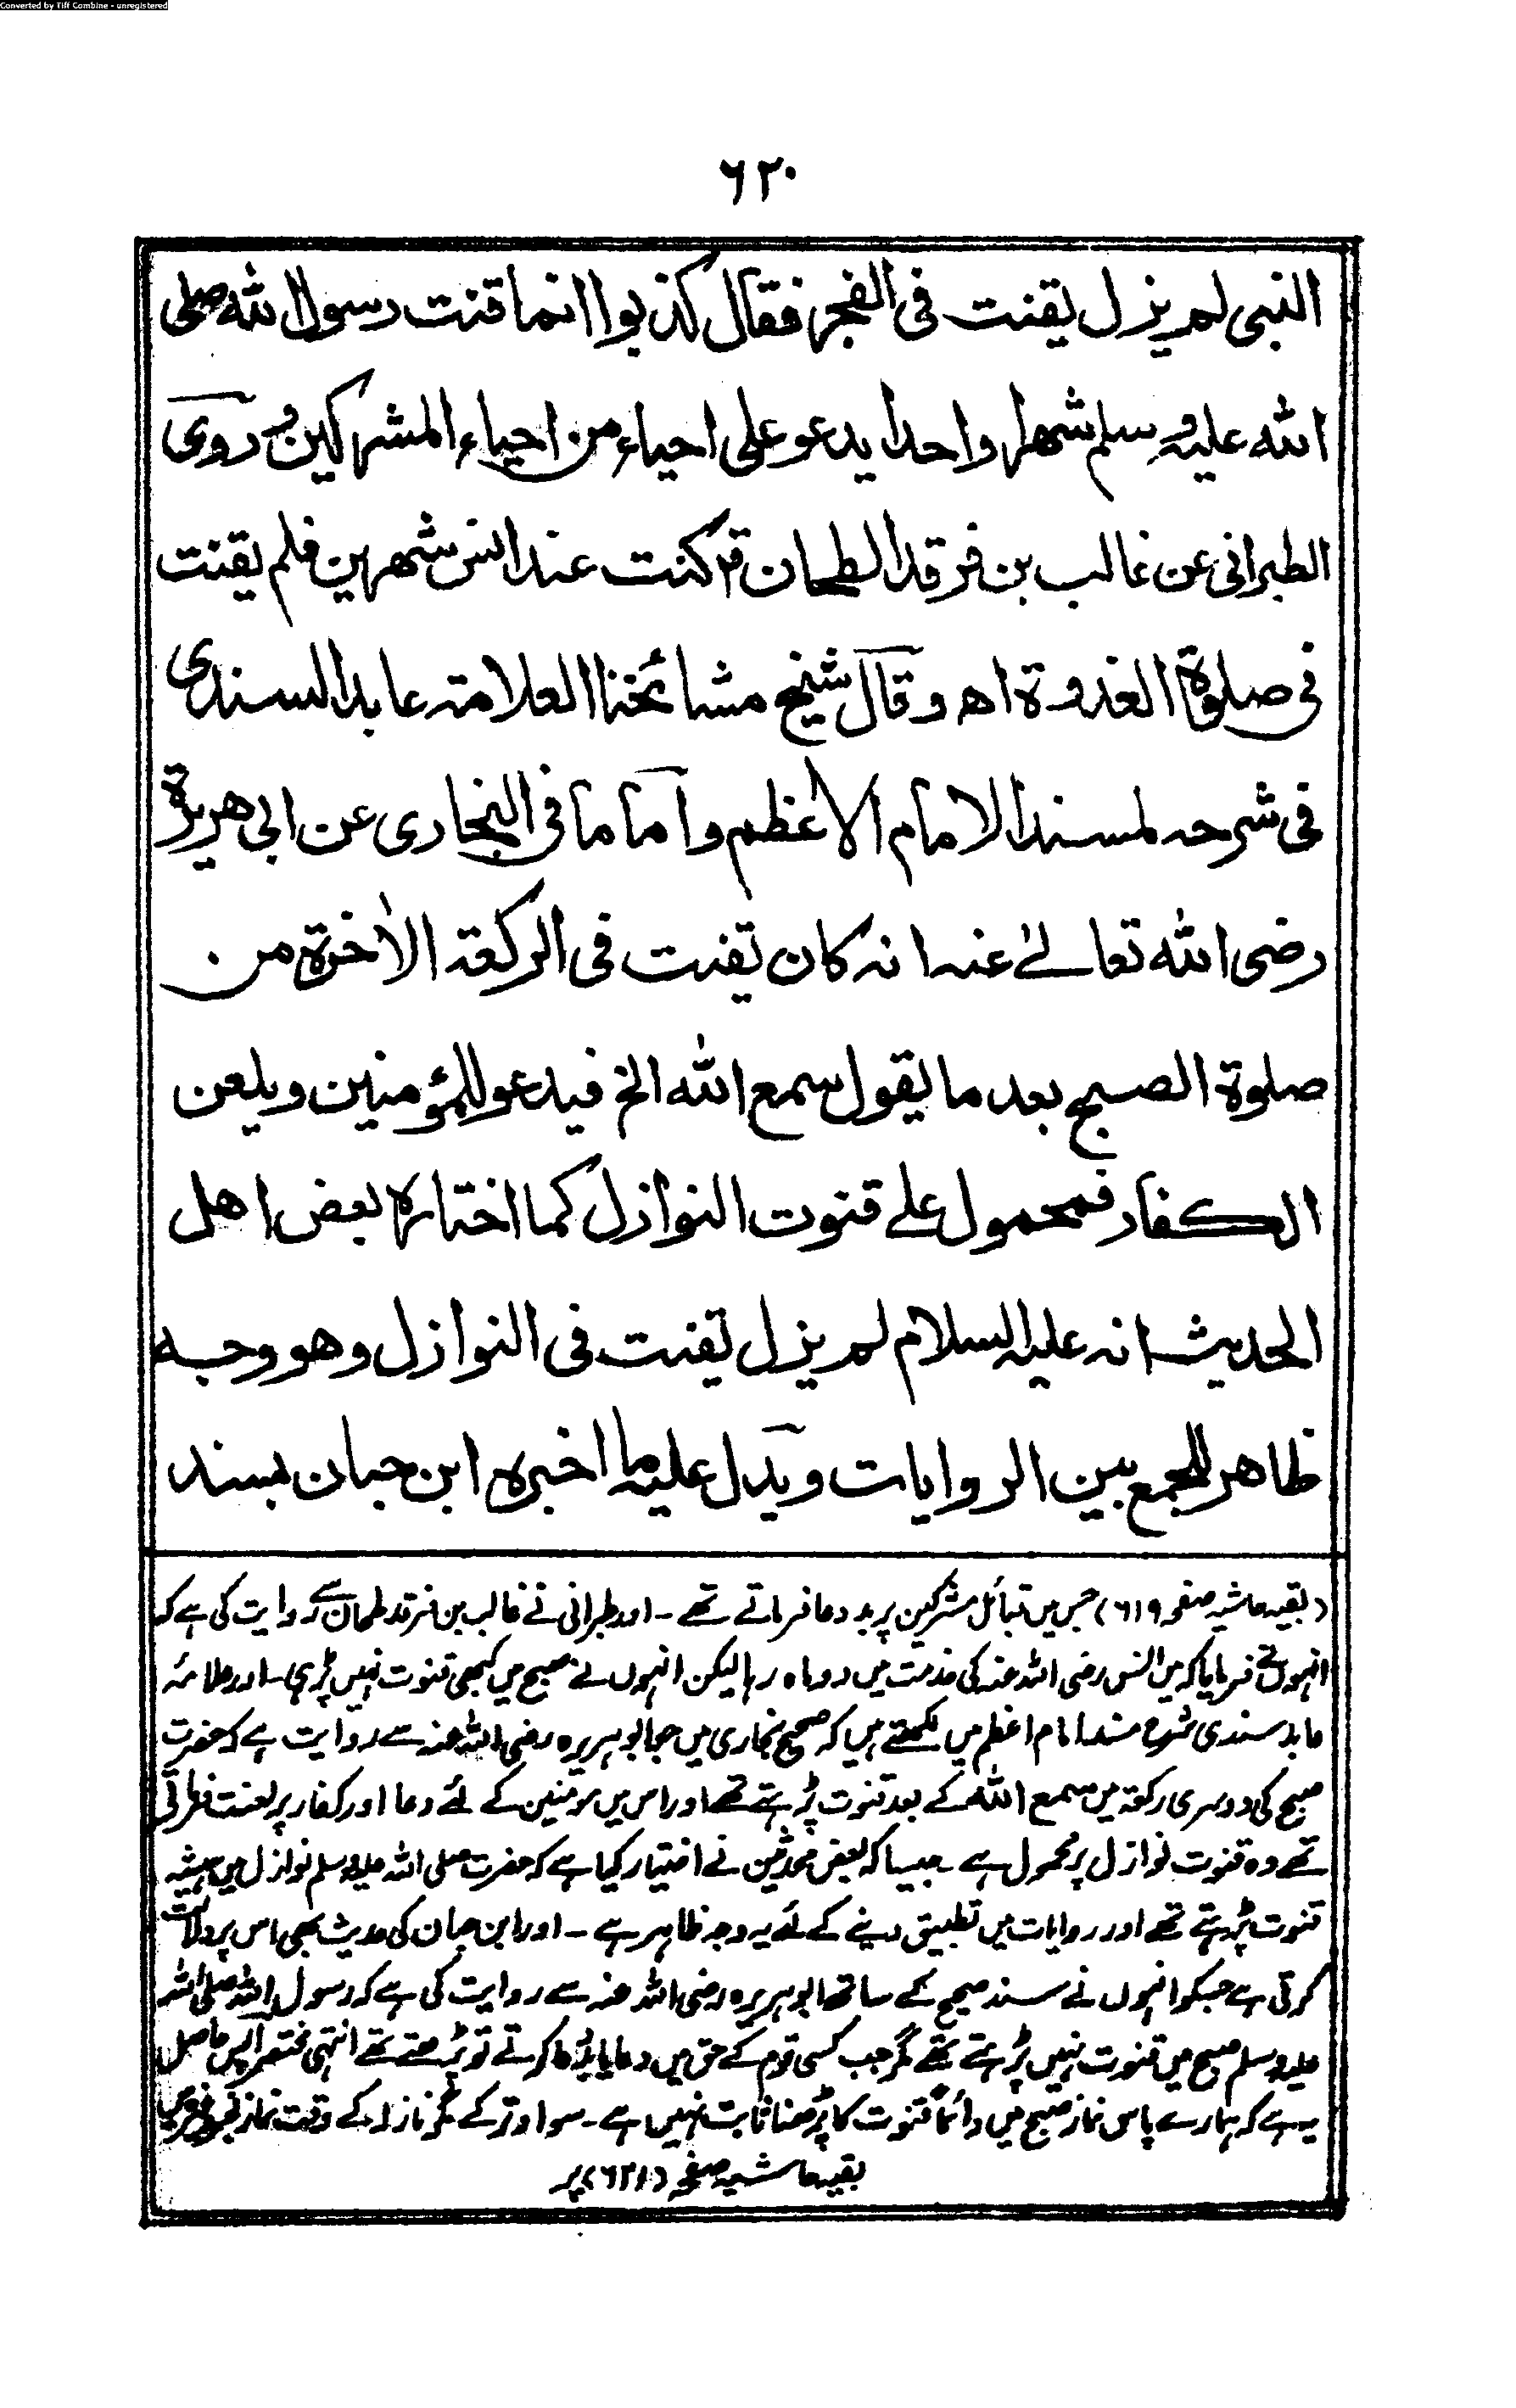 Converted by Tiff Combine - unregistered
۶۲۰
النبی لم یزل یقنت فی الفجر فقال کذبوا انما قنت رسول اللہ صلی
اللہ علیہ وسلم شھرا واحدا یدعو علی احیاء من احیاء المشرکین وروی
الطبرانی عن غالب بن فرقد الطحان قم کنت عند انس شھرین فلم یقنت
فی صلوۃ الغدوۃ اھ وقال شیخ مشائخنا العلامۃ عابد السندی
فی شرحہ لمسند الامام الاعظم واما ما فی البخاری عن ابی ھریرۃ
رضی اللہ تعالےٰ عنہ انہ کان یقنت فی الرکعۃ الاخرۃ من
صلوۃ الصبح بعد ما یقول سمع اللہ الخ فیدعو للمؤمنین ویلعن
الکفار فمحمول علے قنوت النوازل کما اختارہ بعض اھل
الحدیث انہ علیہ السلام لم یزل یقنت فی النوازل وھو وجہ
ظاھر للجمع بین الروایات ویدل علیہ ما اخبرہ ابن حبان بسند
(بقیہ حاشیہ صفحہ ۶۱۹) جس میں قبائل مشرکین پر بد دعا فرماتے تھے ۔ اور طبرانی نے غالب بن فرقد طحان سے روایت کی ہے کہ
انہوں نے فرمایا کہ میں انس رضی اللہ عنہ کی خدمت میں دو ماہ رہا لیکن انہوں نے صبح میں کبھی قنوت نہیں پڑہی ۔ اور علامہ
عابد سندی شرح مسند امام اعظم میں لکھتے ہیں کہ صحیح بخاری میں جو ابو ہریرہ رضی اللہ عنہ سے روایت ہے کہ حضرت
صبح کی دوسری رکعۃ میں سمع اللہ کے بعد قنوت پڑہتے تھے اور اس میں مومنین کے لئے دعا اور کفار پر لعنت فرماتے
تھے وہ قنوت نوازل پر محمول ہے ۔ جیسا کہ بعض محدثین نے اختیار کیا ہے کہ حضرت صلی اللہ علیہ وسلم نوازل میں ہمیشہ
قنوت پڑہتے تھے اور روایات میں تطبیق دینے کے لئے یہ وجہ ظاہر ہے ۔ اور ابن حبان کی حدیث بھی اس پر دلالت
کرتی ہے جسکو انہوں نے سند صحیح کے ساتھ ابو ہریرہ رضی اللہ عنہ سے روایت کی ہے کہ رسول اللہ صلی اللہ
علیہ وسلم صبح میں قنوت نہیں پڑہتے تھے مگر جب کسی قوم کے حق میں دعا یا بد دعا کرتے تو پڑھتے تھے انتہی مختصرا پس حاصل
یہ ہے کہ ہمارے پاس نماز صبح میں دائماً قنوت کا پڑھنا ثابت نہیں ہے ۔ سوا وتر کے مگر نازلہ کے وقت نماز فجر
بقیہ حاشیہ صفحہ (۶۲۱) پر